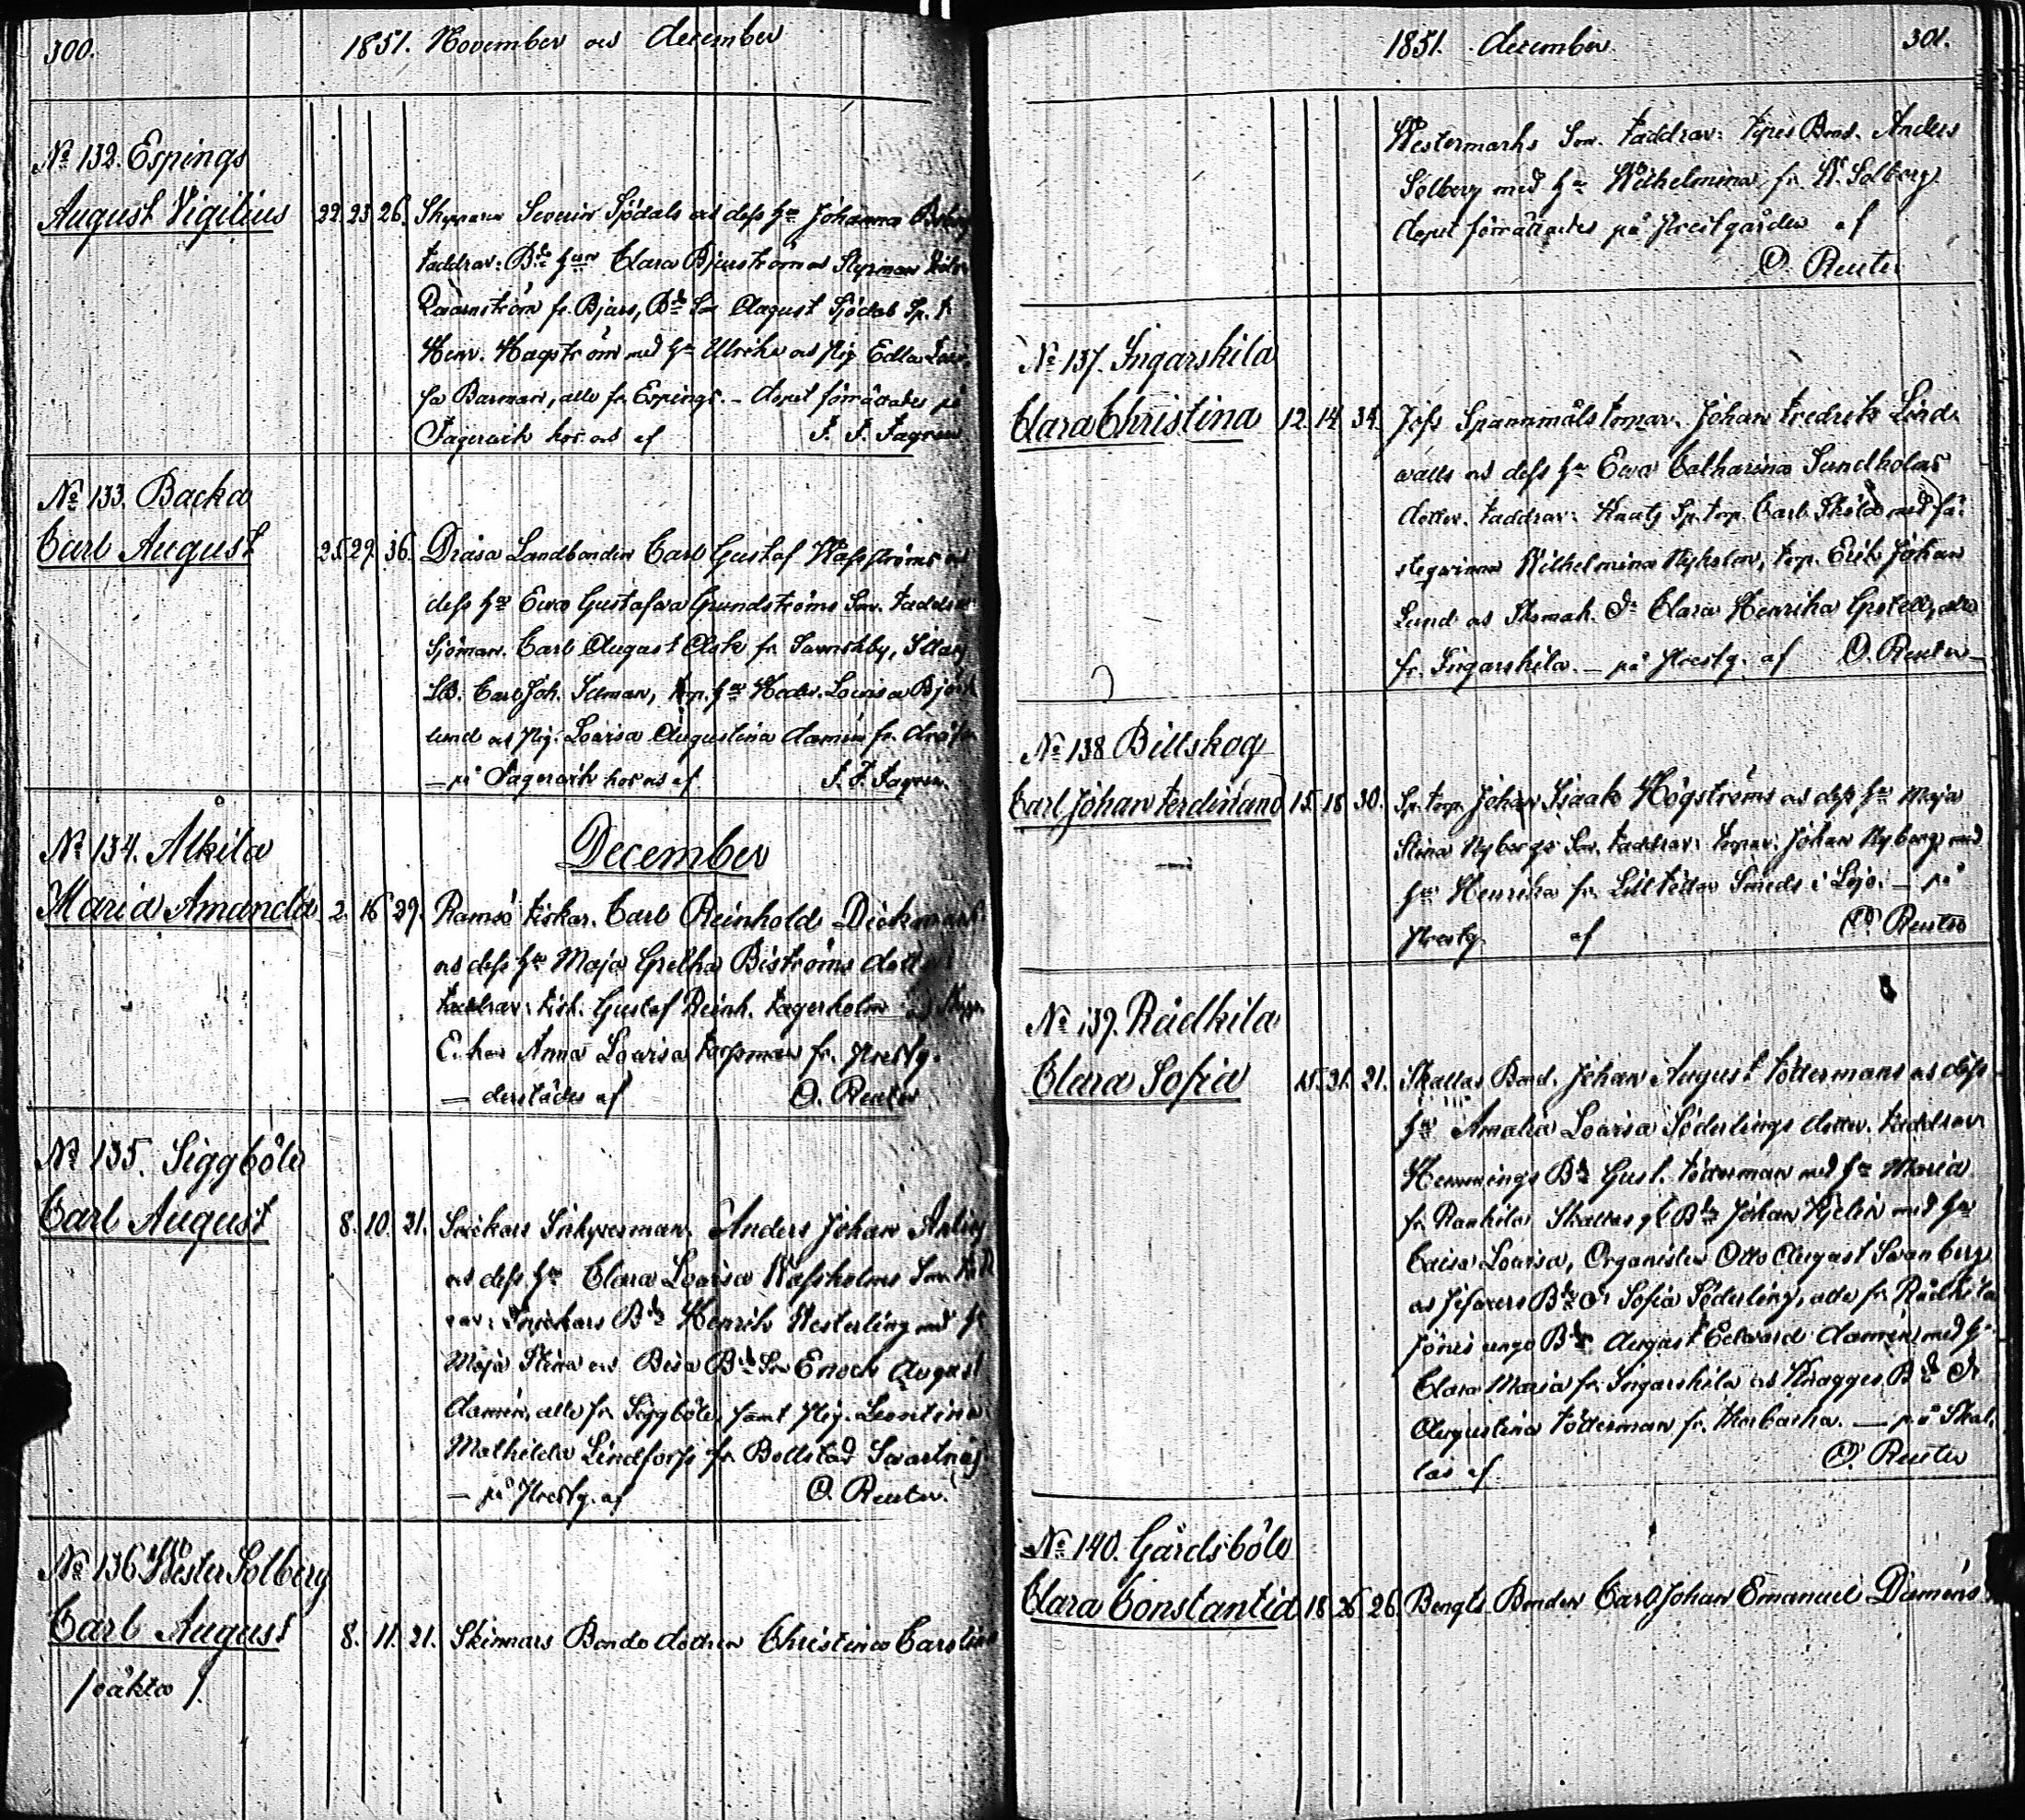 300. 1851. November och December
No 132. Espings
August Vigilius 22. 23. 26. Skepparen Severin Sjödals och dess h:u Johanna
Faddrar: B:de h:un Clara Bjurström och Styrman
Qvarnström fr. Bjurs, B:de Son August Sjödal Sp. t.
Henr. Hagström med h:u Ulrika och Pig. Edla
sa Barman, alla fr. Espings. – Dopet förrättades på
Fagervik hos os af F. F. Fagren
No 133. Backa
Carl August 25. 29. 36. Dråsa Landbonden Carl Gustaf Wassströms och
dess h:u Eva Gustafva Grundströms Son. Faddrar
Sjöman. Carl August Ask fr. Sarmsby,
Carl Joh. Selman, torp. h:u Hedv. Lovisa Björk
lund och Pig. Lovisa Augustina Damén fr.
– på Fagervik hos os af F. F. Fagren.
December
No 134. Alkila
Maria Amanda 2. 16. 29. Ramsö Fiskar. Carl Reinhold Dickmans
och dess h:u Maja Gretha Biströms dotter
Faddrar: Fisk. Gustaf Reinh. Fagerholm och
E. kan Anna Lovisa Forsman fr. Prestg.
– derstädes af O. Reuter
No 135. Siggböle
Carl August 8. 10. 21. Snickars Inhysesman. Anders Johan
och dess h:u Clara Lovisa Wassholms Son. Fadd
rar: Snickars B:de Henrik Westerling med h:u
Maja Stina och Besa B:de Son Enoch August
Damén, alla fr. Siggböle, samt Pig. Leontina
Mathilda Lindforss fr. Bollstad Svartnäs
– på Prestg. af O. Reuter.
No 136 Wester Solberg
Carl August 8. 11. 21. Skinnars Bonde dottren Christina Carolina
/oäkta/
1851. December 301.
Westermarks Son. Faddrar: Bond. Anders
Solberg med h:u Wilhelmina fr. W. Solberg
Dopet förrättades på Prestgården af
O. Reuter
No 137. Ingarskila
Clara Christina 12. 14. 34. Joss Spannmåls torpar. Johan Fredrik Lind
walls och dess h:u Eva Catharina Sundholms
dotter. Faddrar: Knuts Sp. torp. Carl Sköld med fä
steqvinna Wilhelmina Nyholm, torp. Erik Johan
Lund och Skomak. Dr. Clara Henrika alla
fr. Ingarskila. – på Prestg. af O. Reuter
No 138 Billskog
Carl Johan Ferdinand 15. 18. 30. Sp. torp. Johan Isaak Högströms och dess h:u Maja
Stina Nybergs Son. Faddrar: torpar. Johan Nyberg med
h:u Henrika fr. Lilltötta Smeds i Lojo. – på
Prestg. af O. Reuter
No 139. Rådkila
Clara Sofia 15. 21. 21. Skallas Bond. Johan August Töttermans och dess
h:u Amalia Lovisa Söderlings dotter. Faddrar
Hemmings B:de Gust. Tötterman med h:u Maria
fr. Rankila Skallas gl. B:de Johan Kjelin med h:u
Caisa Lovisa, Organisten Otto August Svanberg
och Jefarers B:de Dr Sofia Söderling, alla fr. Rådkila
Jönis unge B:de August Edvard Damén med h:u
Clara Maria fr. Ingarskila och Knagges B:de Dr
Augustina Tötterman fr. Thorbacka. – på Skal
las af O. Reuter
No 140. Gårdsböle
Clara Constantia 18. 26. 26. Bengts Bonden Carl Johan Emanuel Daméns